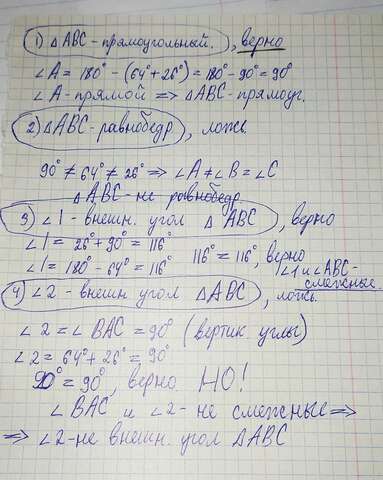 1) △ABC - прямоугольный., верно
∠A = 180° - (64° + 26°) = 180° - 90° = 90°
∠A - прямой => △ABC - прямоуг.
2) △ABC - равнобедр, ложь.
90° ≠ 64° ≠ 26° => ∠A ≠ ∠B = ∠C
△ABC - не равнобедр.
3) ∠1 - внешн. угол △ABC, верно
∠1 = 26° + 90° = 116°
116° = 116°, верно
∠1 = 180° - 64° = 116°
∠1 и ∠ABC - смежные.
4) ∠2 - внешн угол △ABC, ложь.
∠2 = ∠BAC = 90° (вертик. углы)
∠2 = 64° + 26° = 90°
90° = 90°, верно НО!
∠BAC и ∠2 - не смежные =>
=> ∠2 - не внешн. угол △ABC